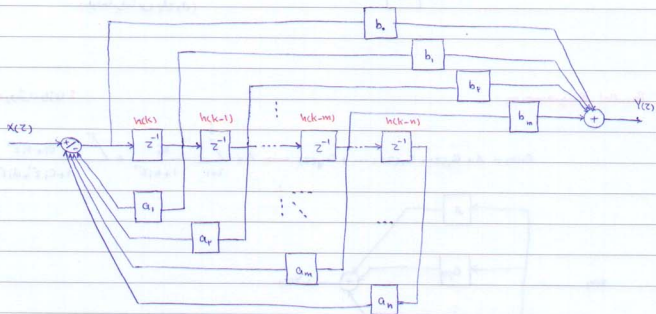 b₀
b₁
b₂
b_m
Y(z)
X(z)
h(k)
h(k-1)
h(k-m)
h(k-n)
+
-
z⁻¹
z⁻¹
z⁻¹
z⁻¹
+
a₁
a₂
a_m
a_n